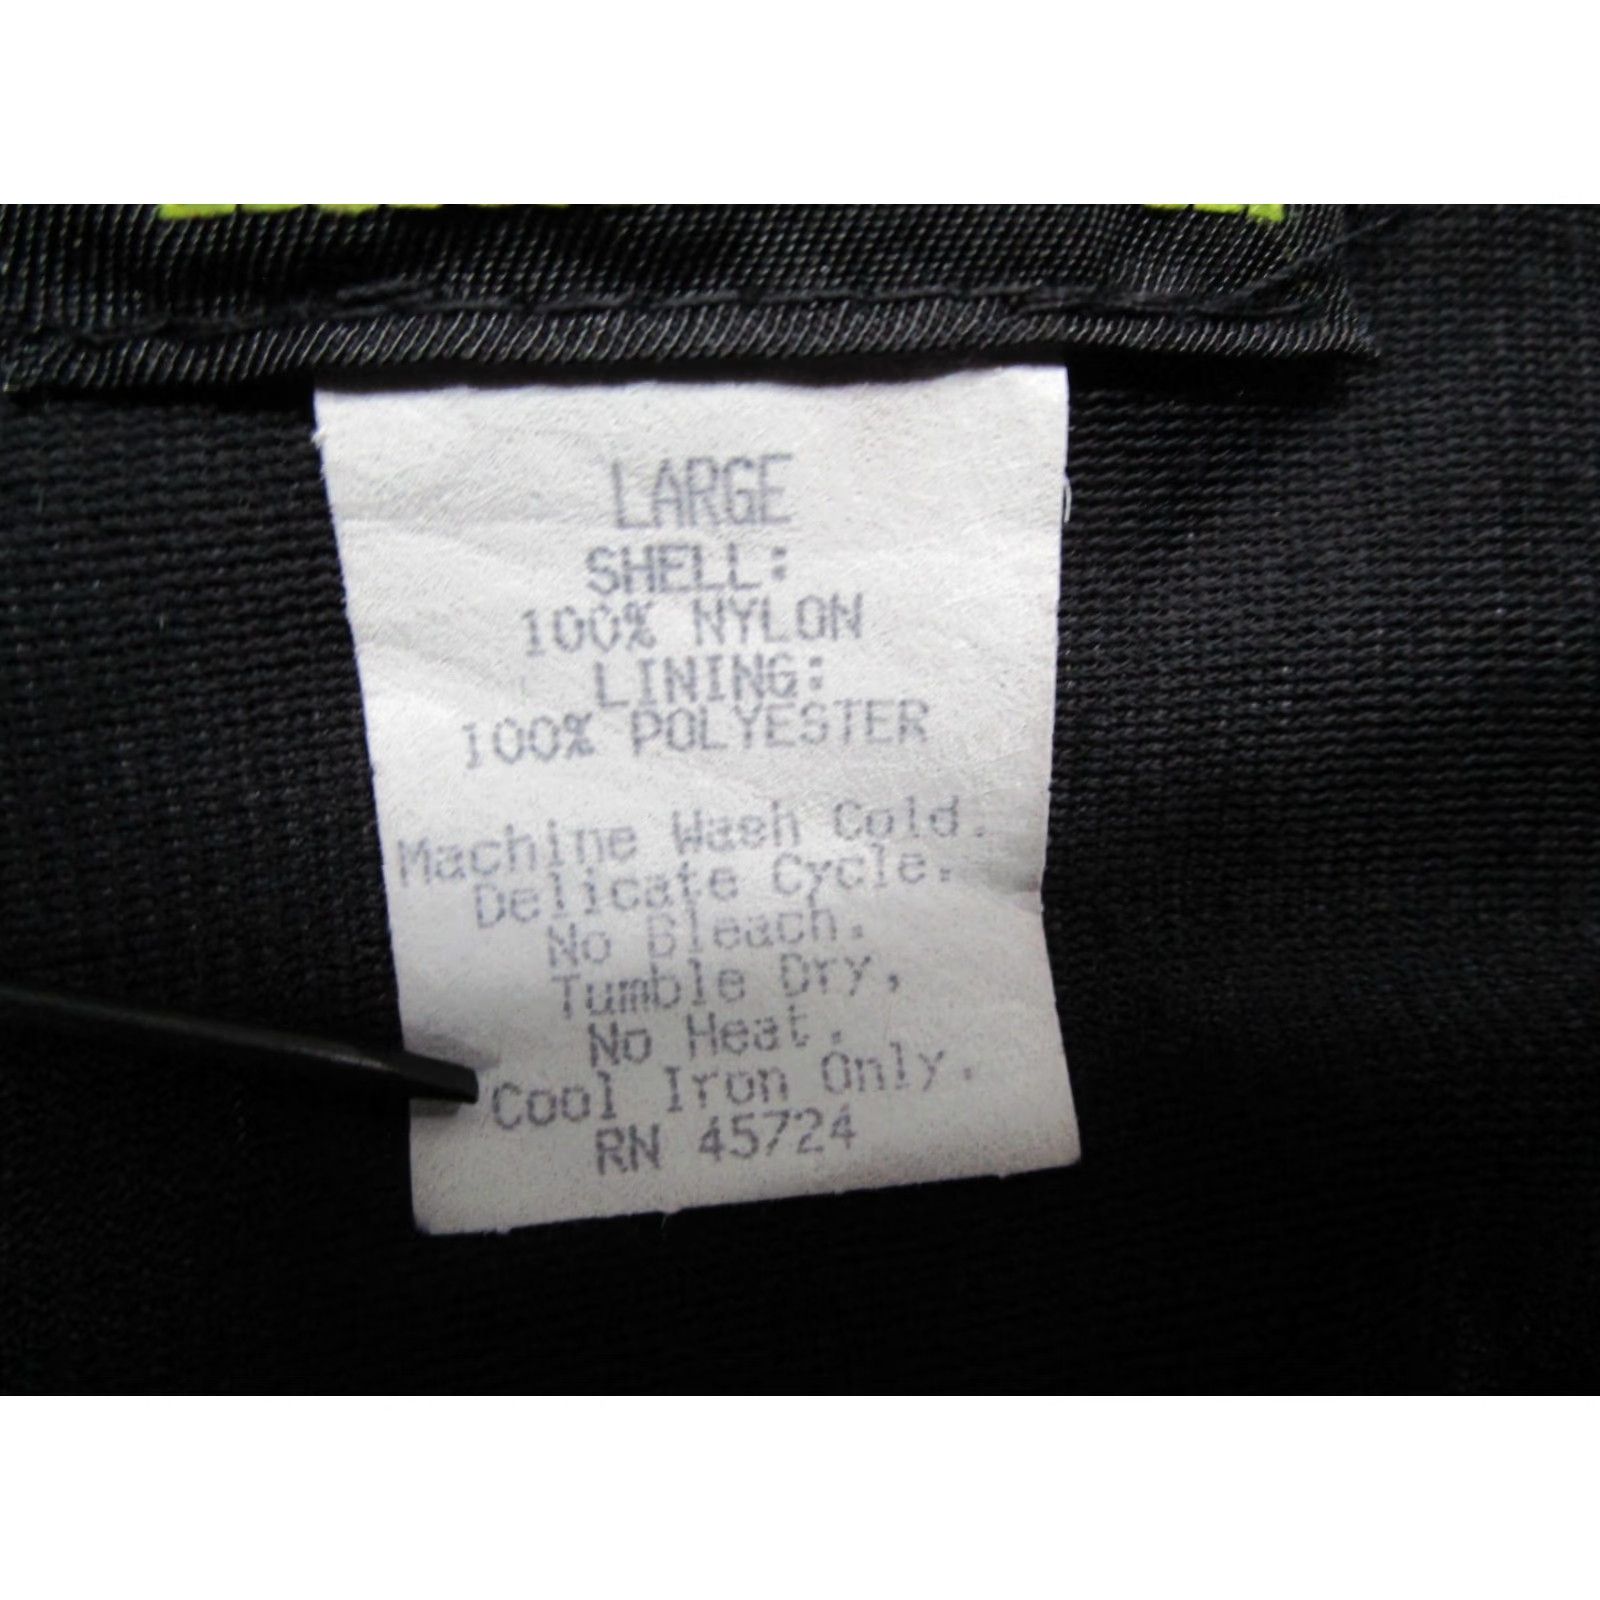 LARGE
SHELL:
100% NYLON
LINING:
100% POLYESTER
Machine Wash Cold.
Delicate Cycle.
No Bleach.
Tumble Dry,
No Heat.
Cool Iron Only.
RN 45724